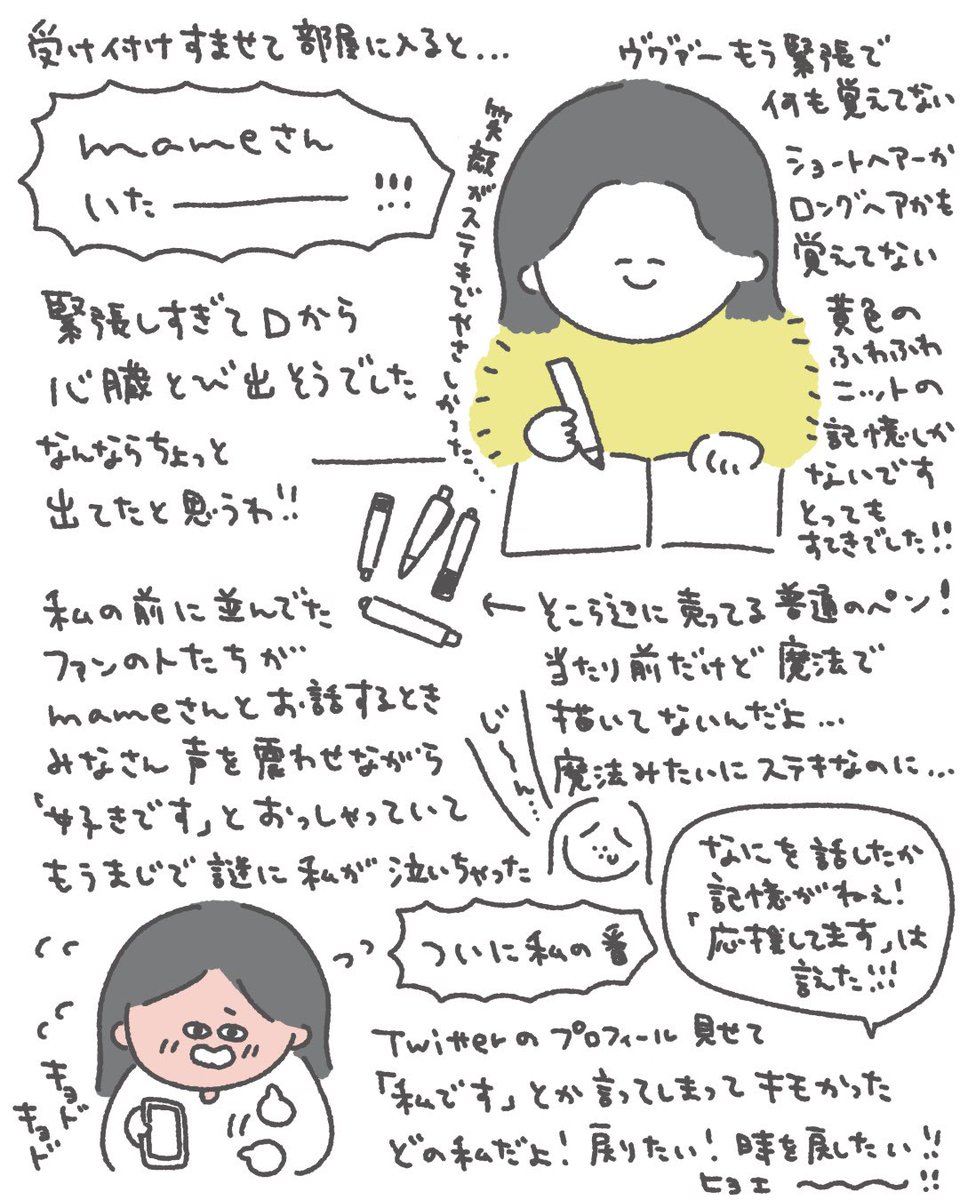 受け付けすませて部屋に入ると...
mameさん
いた――――!!!
緊張しすぎて口から
心臓とび出そうでした
なんならちょっと
出てたと思うわ!!
笑顔がステキでやさしかった...
ヴヴァーもう緊張で
何も覚えてない
ショートヘアーか
ロングヘアかも
覚えてない
黄色の
ふわふわ
ニットの
記憶しか
ないです
とっても
すてきでした!!
←そこら辺に売ってる普通のペン!
当たり前だけど魔法で
描いてないんだよ...
魔法みたいにステキなのに...
私の前に並んでた
ファンの人たちが
mameさんとお話するとき
みなさん声を震わせながら
「好きです」とおっしゃっていて
もうまじで謎に私が泣いちゃった
じ〜ん...
ついに私の番
なにを話したか
記憶がねぇ!
「応援してます」は
言えた!!!
Twitterのプロフィール見せて
「私です」とか言ってしまってキモかった
どの私だよ!戻りたい!時を戻したい!!
ヒョエ〜〜!!
キョド
キョド